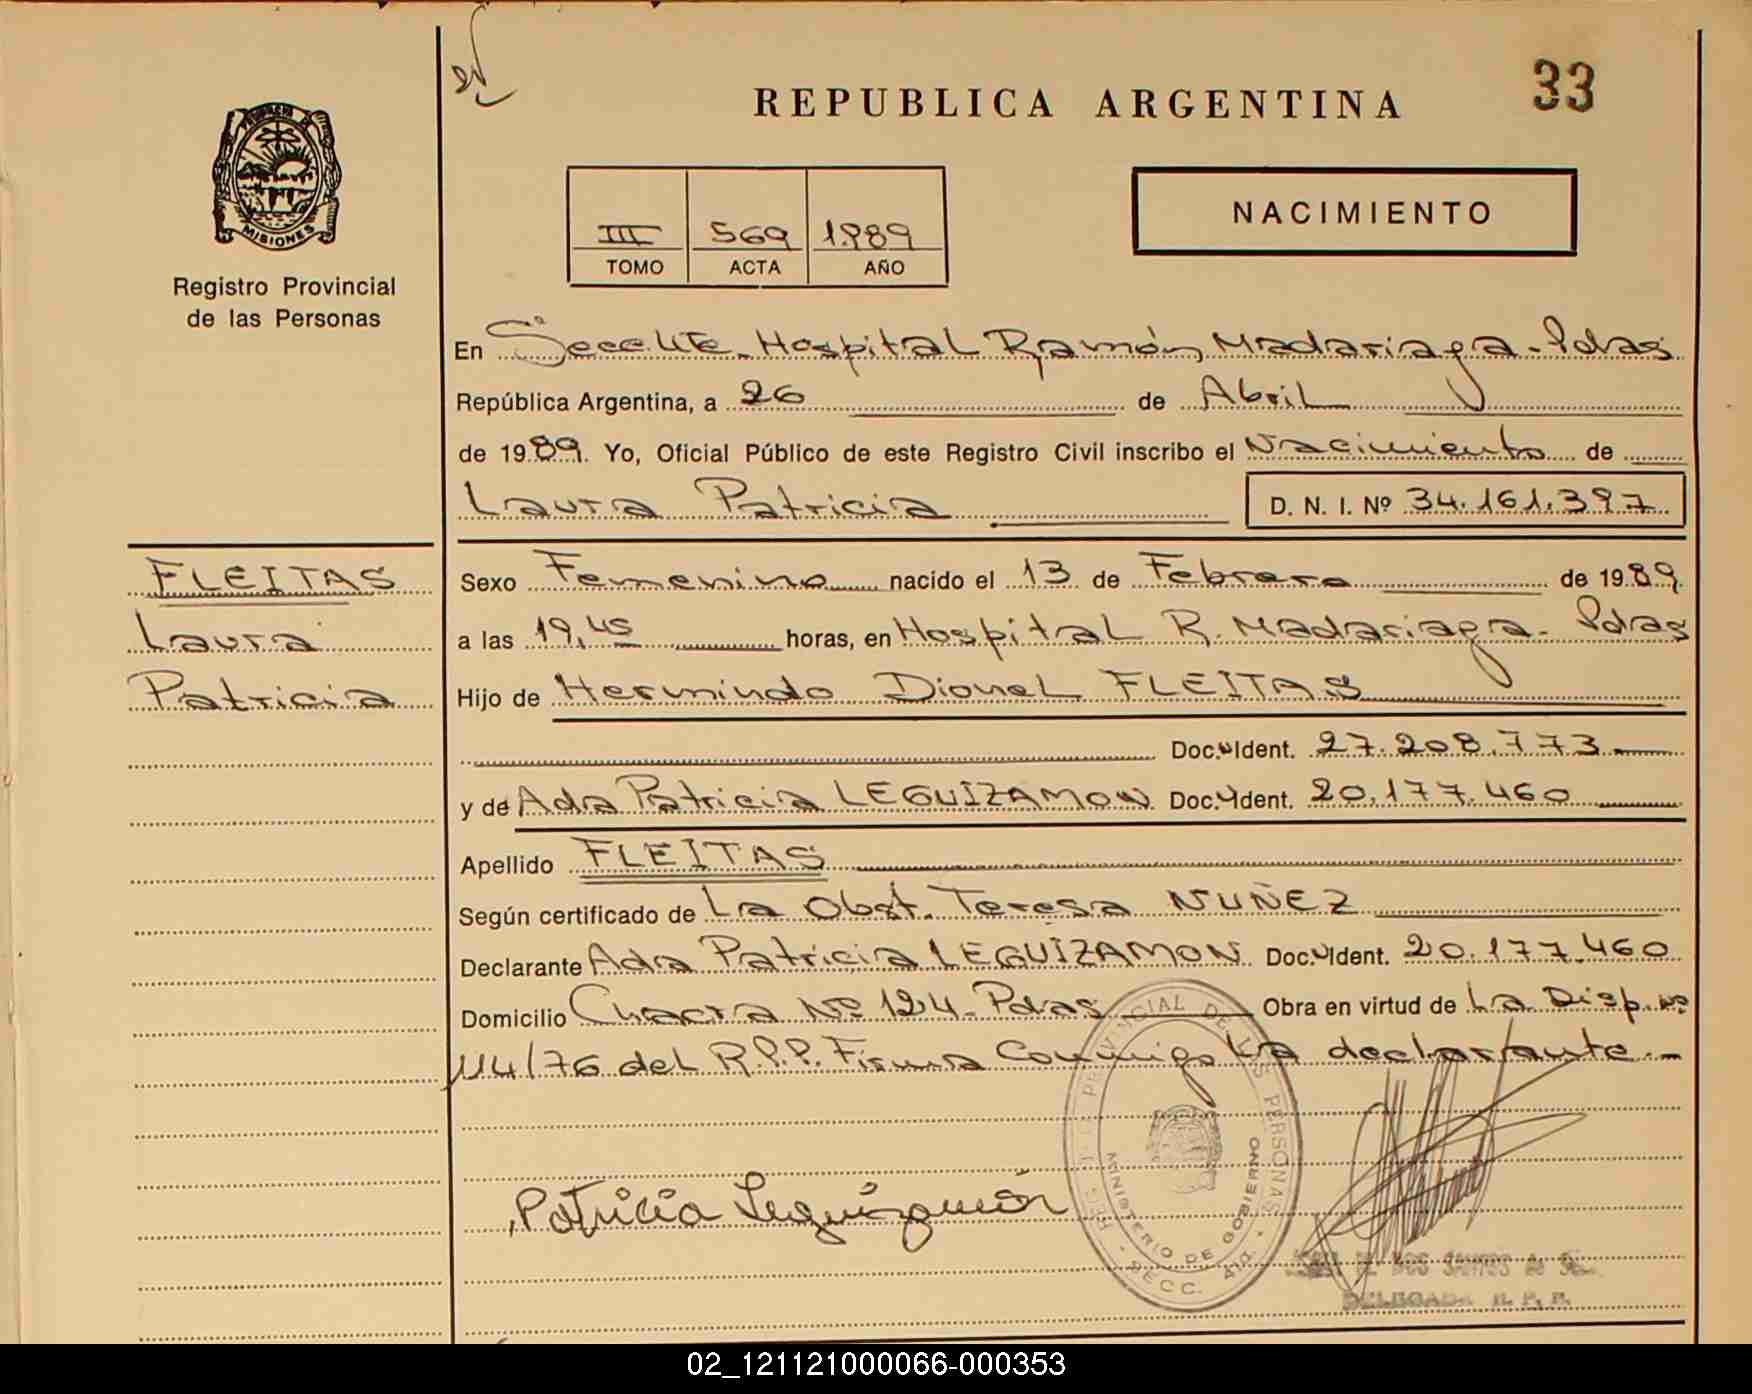 33
REPUBLICA ARGENTINA
MISIONES
Registro Provincial
de las Personas
III 569 1.989
TOMO ACTA AÑO
NACIMIENTO
En Secc 4ta. Hospital Ramón Madariaga - Pdas
República Argentina, a 26 de Abril
de 1989. Yo, Oficial Público de este Registro Civil inscribo el Nacimiento de
Laura Patricia D. N. I. Nº 34.161.397
FLEITAS
Laura
Patricia
Sexo Femenino nacido el 13 de Febrero de 1989
a las 19,45 horas, en Hospital R. Madariaga - Pdas
Hijo de Hermindo Dionel FLEITAS
Doc. Ident. 27.208.773
y de Ada Patricia LEGUIZAMON Doc. Ident. 20.177.460
Apellido FLEITAS
Según certificado de La Obst. Teresa NUÑEZ
Declarante Ada Patricia LEGUIZAMON Doc. Ident. 20.177.460
Domicilio Chacra Nº 124 - Pdas Obra en virtud de La Disp. Nº
114/76 del R.P.P. Firma Conmigo La declarante.-
Patricia Leguizamón
PROVINCIAL DE LAS PERSONAS
MINISTERIO DE GOBIERNO
SECC. 4ta.
DOS SANTOS
DELEGADA R. P. P.
02_121121000066-000353